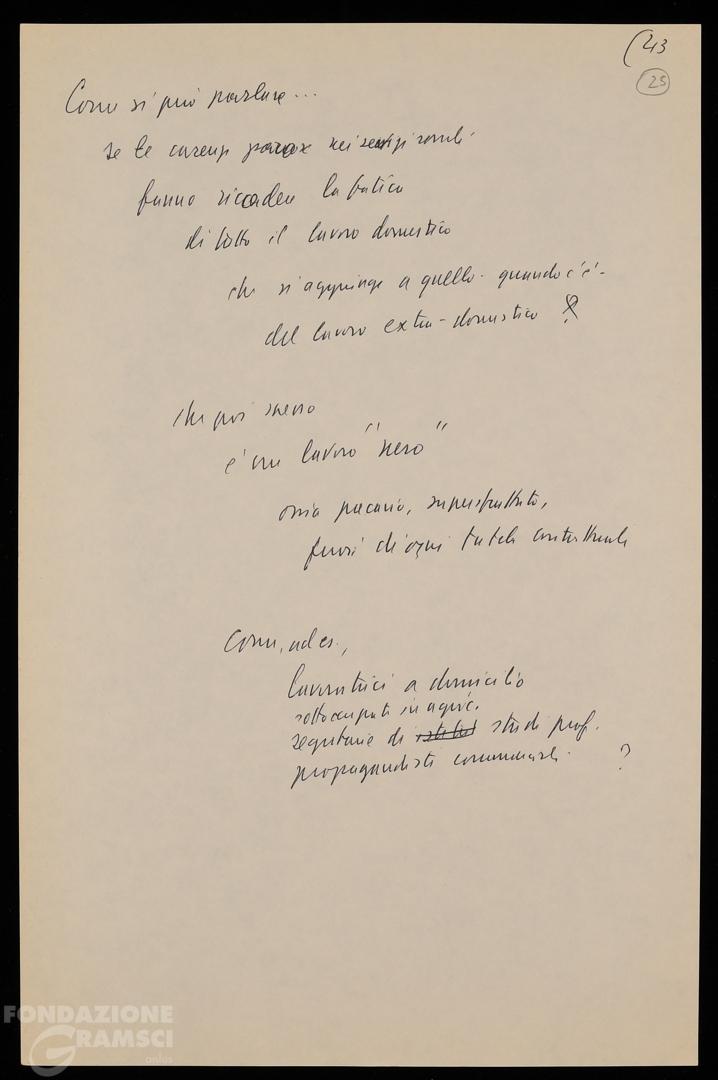 (43
25
Come si può parlare...
se le carenze paurose nei servizi sociali
fanno ricadere la fatica
di tutto il lavoro domestico
che si aggiunge a quello - quando c'è -
del lavoro extra-domestico ?
che poi spesso
è un lavoro "nero"
ossia precario, supersfruttato,
fuori di ogni tutela contrattuale
Come, ad es.,
lavoratrici a domicilio
sottoccupate in agric.
segretarie di studi prof.
propagandiste commerciali. ?
FONDAZIONE
GRAMSCI
onlus